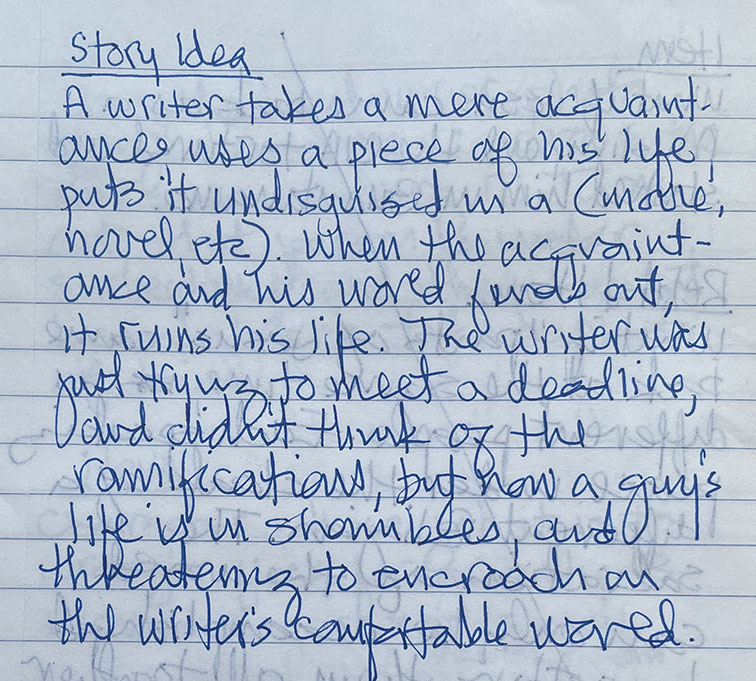 Story Idea
A writer takes a mere acquaint-
ances uses a piece of his life,
puts it undisguised in a (movie,
novel, etc). When the acquaint-
ance and his world finds out,
it ruins his life. The writer was
just trying to meet a deadline,
and didn't think of the
ramifications, but now a guy's
life is in shambles, and
threatening to encroach on
the writer's comfortable world.